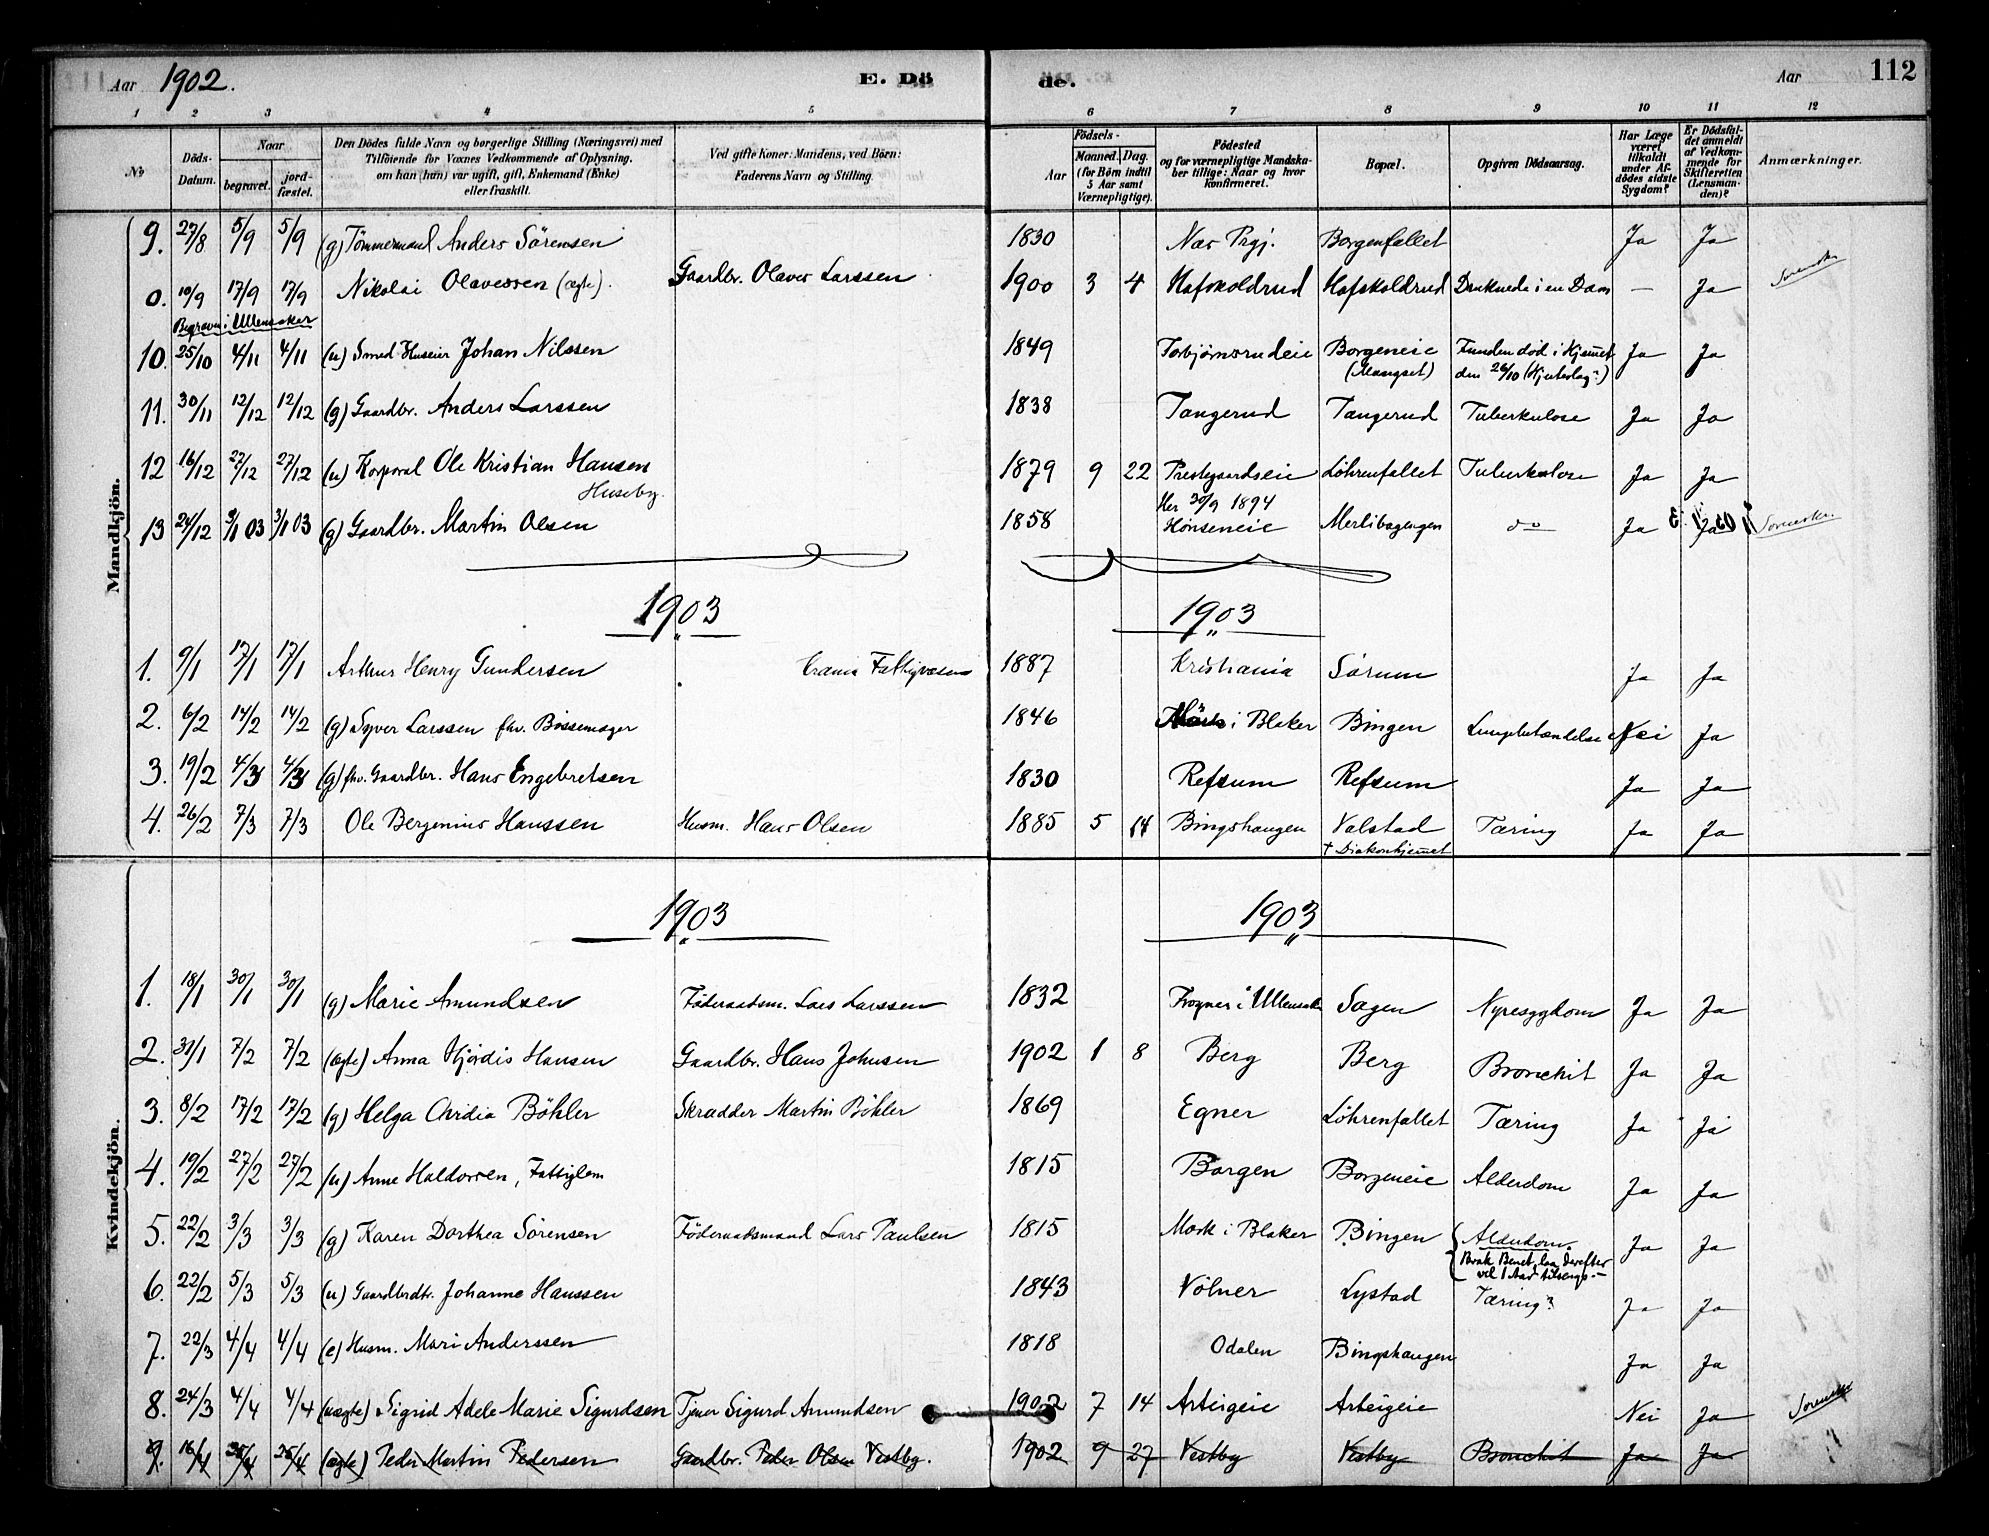 Aar 1902. E. Dö de. Aar 112
1 2 3 4 5 6 7 8 9 10 11 12
No
Döds-Datum.
Naar
begravet.
jordfæstet.
Den Dödes fulde Navn og borgerlige Stilling (Næringsvei) med
Tilföiende for Voxnes Vedkommende af Oplysning,
om han (hun) var ugift, gift, Enkemand (Enke)
eller fraskilt.
Ved gifte Koner: Mandens, ved Börn:
Faderens Navn og Stilling.
Födsels-
Aar
Maaned. Dag.
(for Börn indtil
5 Aar samt
Værnepligtige).
Födested
og for værnepligtige Mandska-
ber tillige: Naar og hvor
konfirmeret.
Bopæl.
Opgiven Dödsaarsag.
Har Læge
været
tilkaldt
under Af-
dödes sidste
Sygdom?
Er Dödsfal-
det anmeldt
af Vedkom-
mende for
Skifteretten
(Lensman-
den)?
Anmærkninger.
Mandkjön.
9. 27/8 5/9 5/9 (g) Tömmermand Anders Sörensen 1830 Næs Prgj. Borgenfallet Ja Ja
0. 10/9 17/9 17/9 Nikolai Olavessen (ægte). Gaardbr. Olaves Larssen 1900 3 4 Hafskoldrud Hafskoldrud Druknede i en Dam — Ja
Begraven i Ullensaker
10. 25/10 4/11 4/11 (u) Smed Huseier Johan Nilssen 1849 Torbjørnsrudeie Borgeneie Funden död i Hjemmet Ja Ja
(Mangset) den 26/10 (Hjerteslag?)
11. 30/11 12/12 12/12 (g) Gaardbr. Anders Larssen 1838 Tangerud Tangerud Tuberkulose Ja Ja
12 16/12 27/12 27/12 (u) Korporal Ole Kristian Hansen 1879 9 22 Prestegaardseie Löhrenfallet Tuberkulose Ja Ja
Huseby. Her 30/9 1894
13 24/12 3/1 03 3/1 03 (g) Gaardbr. Martin Olsen 1858 Hönseneie Merlibagengen do Ja Ja
1903 1903
1. 9/1 17/1 17/1 Arthur Henry Gundersen Crania Fattigvæsen 1887 Kristiania Sörum Ja Ja
2. 6/2 14/2 14/2 (g) Syver Larssen fhv. Bössemager 1846 i Blaker Bingen Lungebetændelse Nei Ja
3. 19/2 4/3 4/3 (g) fhv. Gaardbr. Hans Engebretsen 1830 Refsum Refsum Ja Ja
4. 26/2 7/3 7/3 Ole Bergenius Hanssen Husm. Hans Olsen 1885 5 14 Bingshaugen Valstad Tæring Ja Ja
† Diakonhjemmet
Kvindekjön.
1903 1903
1. 18/1 30/1 30/1 (g) Marie Amundsen Föderaadsm. Lars Larssen 1832 Frogner i Ullensak. Sagen Nyresygdom Ja Ja
2. 31/1 7/2 7/2 (ægte) Anna Hjördis Hansen Gaardbr. Hans Johnsen 1902 1 8 Berg Berg Bronchit Ja Ja
3. 8/2 17/2 17/2 (g) Helga Ovidia Böhler Skrædder Martin Böhler 1869 Egner Löhrenfallet Tæring Ja Ja
4. 19/2 27/2 27/2 (u) Anne Haldorsen, Fattiglem 1815 Borgen Borgeneie Alderdom Ja Ja
5. 22/2 3/3 3/3 (g) Karen Dorthea Sörensen Föderaadsmand Lars Paulsen 1815 Mork i Blaker Bingen Alderdom. Ja Ja
Brak Benet, laa derefter
vel 1 Aar tilsengs.—
6. 22/2 5/3 5/3 (u) Gaardbrdtr. Johanne Hanssen 1843 Völner Lystad Tæring? Ja Ja
7. 22/3 4/4 4/4 (e) Husm. Mari Anderssen 1818 Odalen Bingshaugen Ja Ja
8. 24/3 4/4 4/4 (uægte) Sigrid Adele Marie Sigurdsen Tjener Sigurd Amundsen 1902 7 14 Arteigeie Arteigeie Nei Ja
9. 16/4 25/4 25/4 (ægte) Peder Martin Pedersen Gaardbr. Peder Olsen Vestby. 1902 9 27 Vestby Vestby Bronchit Ja Ja